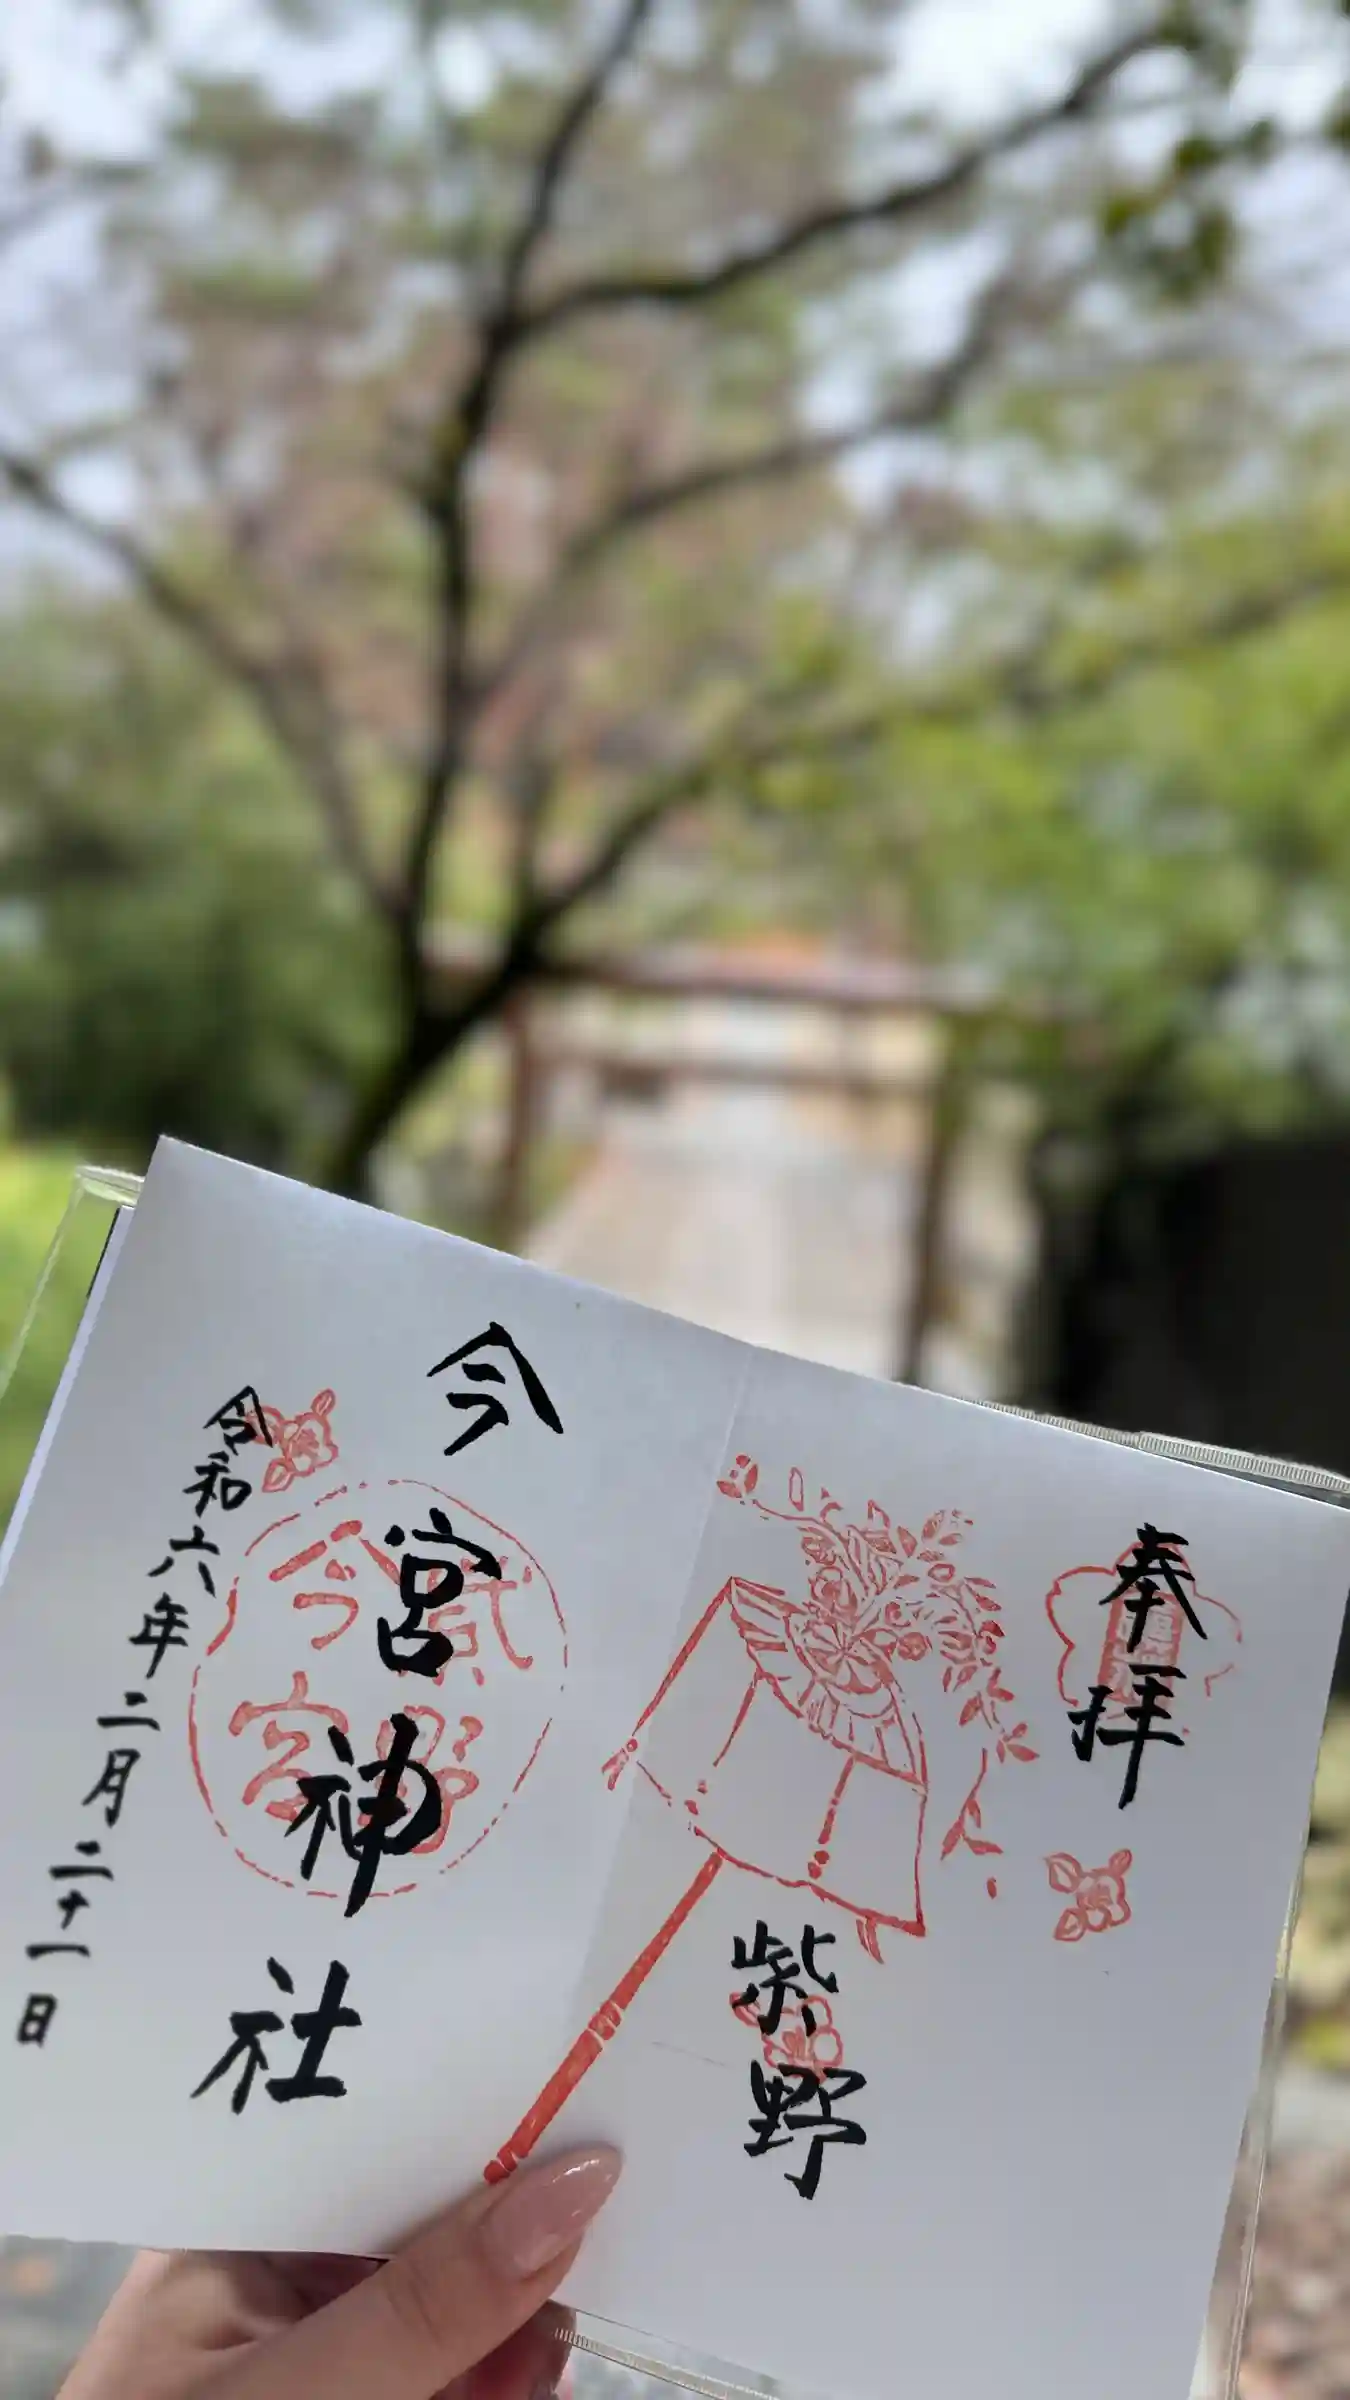 奉拝
紫野
今宮神社
令和六年二月二十一日